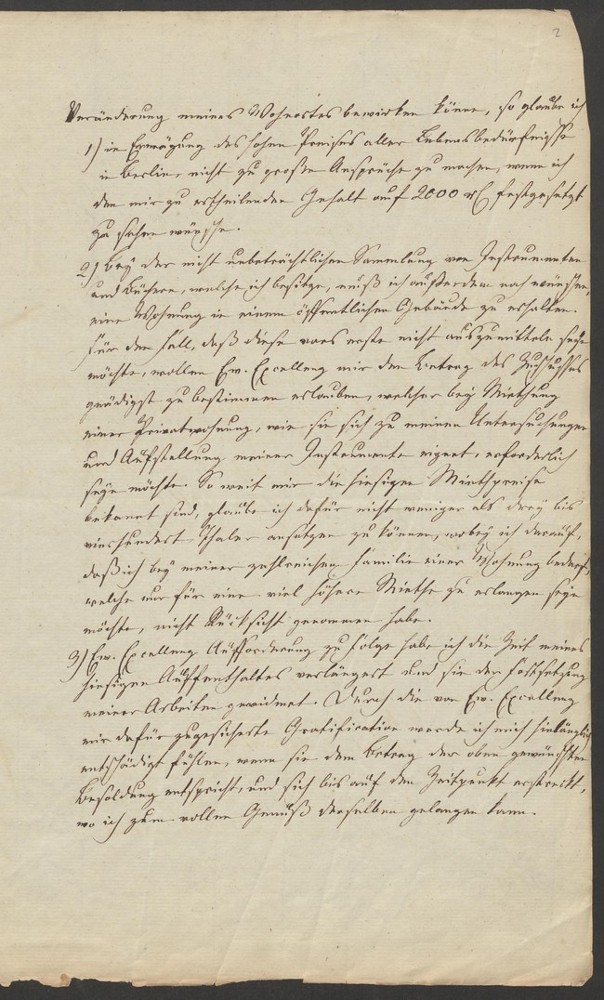 2
Veränderung meines Wohnortes bewirken könne, so glaube ich
1) in Erwägung des hohen Preises aller Lebensbedürfnisse
in Berlin nicht zu große Ansprüche zu machen, wenn ich
den mir zu ertheilenden Gehalt auf 2000 rℓ festgesetzt
zu sehen wünsche.
2) bey der nicht unbeträchtlichen Sammlung von Instrumenten
und Büchern, welche ich besitze, muß ich außerdem noch wünschen,
eine Wohnung in einem öffentlichen Gebäude zu erhalten.
Für den Fall, daß diese vors erste nicht auszumitteln seyn
möchte, wollen Ew. Excellenz mir den Betrag des Zuschusses
gnädigst zu bestimmen erlauben, welcher bey Miethung
einer Privatwohnung, wie sie sich zu meinen Untersuchungen
und Aufstellung meiner Instrumente eignet, erforderlich
seyn möchte. So weit mir die hiesigen Miethpreise
bekannt sind, glaube ich dafür nicht weniger als drey bis
vierhundert Thaler ansetzen zu können, wobey ich darauf,
daß ich bey meiner zahlreichen Familie einer Wohnung bedarf,
welche nur für eine viel höhere Miethe zu erlangen seyn
möchte, nicht Rücksicht genommen habe.
3) Ew. Excellenz Aufforderung zu folge habe ich die Zeit meines
hiesigen Auffenthaltes verlängert und sie der Fortsetzung
meiner Arbeiten gewidmet. Durch die von Ew. Excellenz
mir dafür zugesicherte Gratification werde ich mich hinlänglich
entschädigt fühlen, wenn sie dem Betrag der oben gewünschten
Besoldung entspricht, und sich bis auf den Zeitpunkt erstreckt,
wo ich zum vollen Genuß derselben gelangen kann.